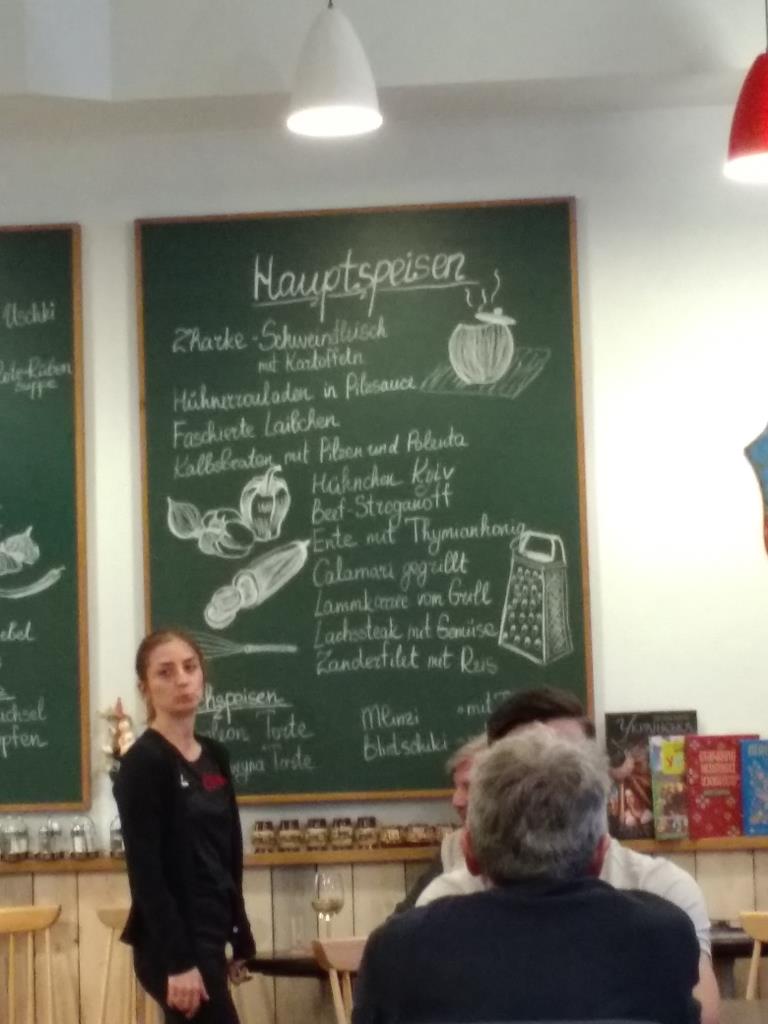 Uschki
Rote-Rüben
Suppe
Hauptspeisen
Zharke - Schweinfleisch
mit Kartoffeln
Hühnerrouladen in Pilzsauce
Faschierte Laibchen
Kalbsbraten mit Pilzen und Polenta
Hühnchen Kyiv
Beef-Stroganoff
Ente mit Thymianhonig
Calamari gegrillt
Lammkarree vom Grill
Lachssteak mit Gemüse
Zanderfilet mit Reis
hspeisen
Torte
Torte
Mlinzi
mit
УКРАЇНСЬКА